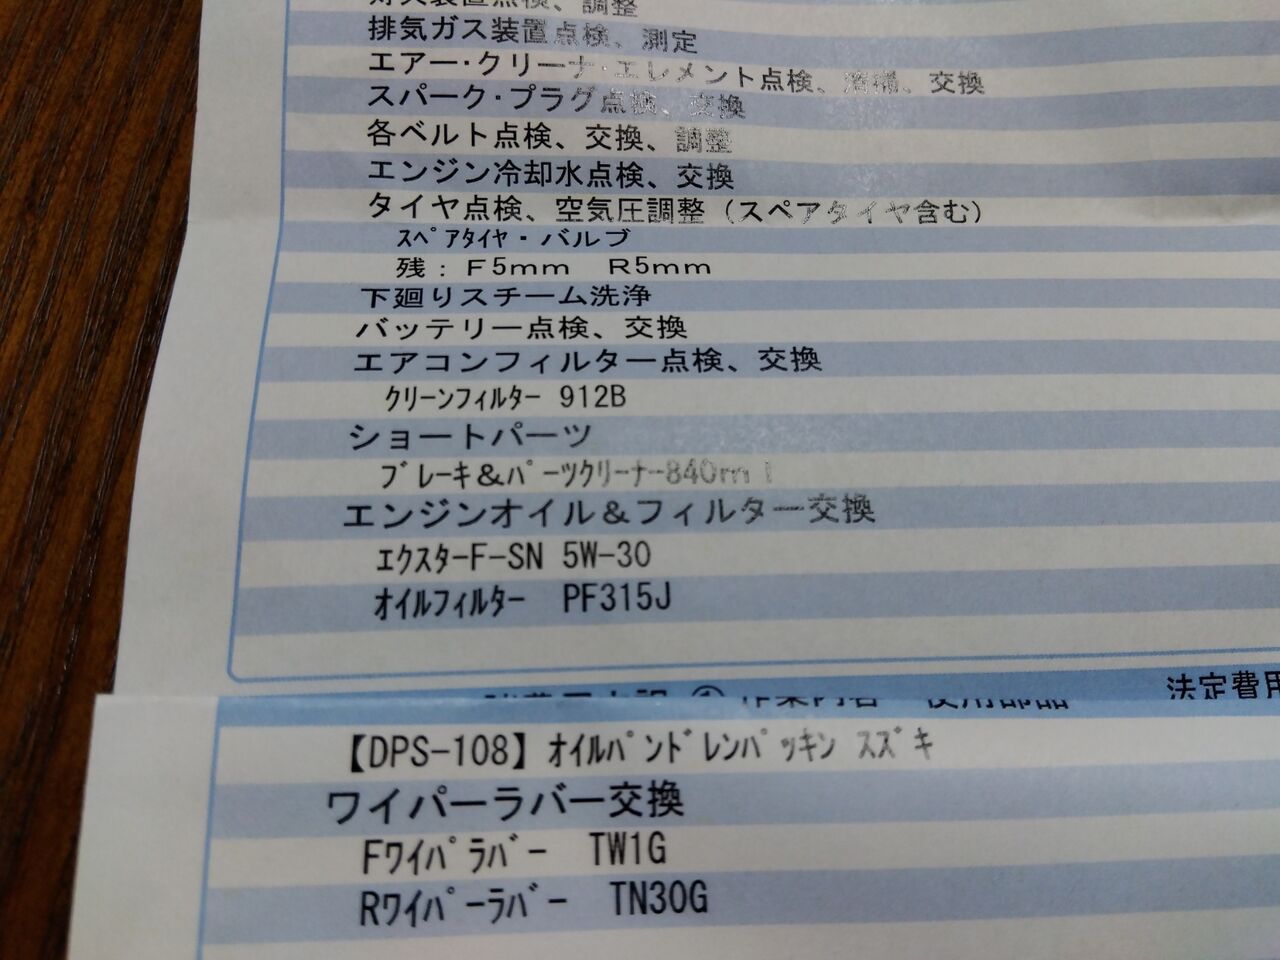 点検、調整
排気ガス装置点検、測定
エアー・クリーナ・エレメント点検、清掃、交換
スパーク・プラグ点検、交換
各ベルト点検、交換、調整
エンジン冷却水点検、交換
タイヤ点検、空気圧調整（スペアタイヤ含む）
ｽﾍﾟｱﾀｲﾔ・バルブ
残：F5mm R5mm
下廻りスチーム洗浄
バッテリー点検、交換
エアコンフィルター点検、交換
ｸﾘｰﾝﾌｨﾙﾀｰ 912B
ショートパーツ
ﾌﾞﾚｰｷ&ﾊﾟｰﾂｸﾘｰﾅｰ840ml
エンジンオイル＆フィルター交換
ｴｸｽﾀｰF-SN 5W-30
ｵｲﾙﾌｨﾙﾀｰ PF315J
法定費用
【DPS-108】ｵｲﾙﾊﾟﾝﾄﾞﾚﾝﾊﾟｯｷﾝ ｽｽﾞｷ
ワイパーラバー交換
Fﾜｲﾊﾟﾗﾊﾞｰ TW1G
Rﾜｲﾊﾟｰﾗﾊﾞｰ TN30G